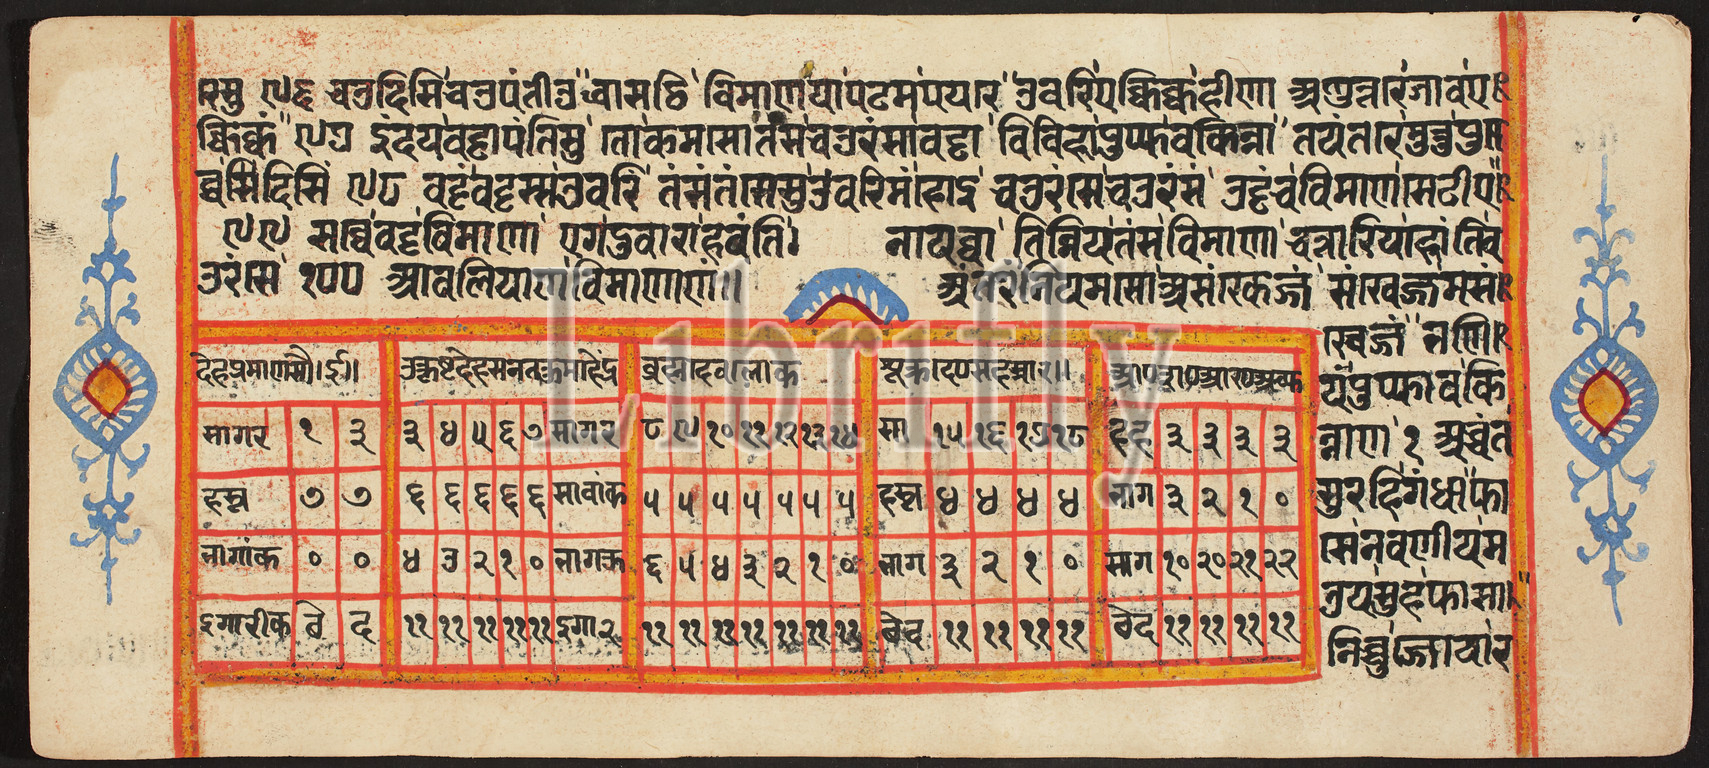 रेसु ९६ चउदिसि चउपंतीउ बासठि विमाणिया पढमपयरे उवरि एक्किक्कहीणा अणुत्तरे जाव ए
क्किक्कं ९७ इंदयवट्टा पंतिसु तो कमसो तंस चउरंसा वट्टा विविहा पुप्फवकिन्ना तयंतरे मुत्तु पु
व्वदिसिं ९८ वट्टं वट्टस्सुवरि तंसं तंसस्सुउवरिमं होइ चउरंसे चउरंसं उड्ढं च विमाणसेढीए
९९ सव्वे वट्टविमाणा एगदुवारा हवंति नायव्वा तिन्नियतंसविमाणा चत्तारि य होंति च
उरंसे १०० आवलियाण विमाणाणं॥ अंतरं नियमसो असंखेज्जं संखेज्जमसं
खेज्जं भणि
यं पुप्फावकि
न्नाणं १ अच्चंत
सुरहिगंधा फा
से नवणीयम
उयसुहफासा
निच्चुज्जोया र
देहप्रमाण सौ० ई०। उत्कृष्टदेह सनत्कुमारमाहेंद्र ब्रह्मदेवलोक शुक्रादेणसहस्सार॥ आणप्राणआरणअच्यु
सागर १ ३ ३ ४ ५ ६ ७ सागर ८ ९ १० ११ १२ १३ १४ सा १५ १६ १७ १८ देह ३ ३ ३ ३
हस्त ७ ७ ६ ६ ६ ६ ६ भागांक ५ ५ ५ ५ ५ ५ ५ हस्त ४ ४ ४ ४ भाग ३ २ १ ०
भागांक ० ० ४ ३ २ १ ० भागक ६ ५ ४ ३ २ १ ० भाग ३ २ १ ० साग १९ २० २१ २२
इगारीक छे द ११ ११ ११ ११ ११ इगार ११ ११ ११ ११ ११ ११ ११ छेद ११ ११ ११ ११ छेद ११ ११ ११ ११
Librifly